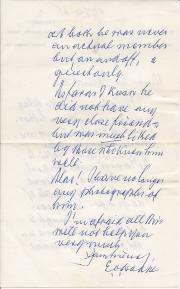 at both he was never
an actual member
but an
a
guest only.
As far as I know he
did not have any
very close friends
but was much liked
by those that knew him
well.
Alas! I have no longer
any photographs of
him.
I'm afraid all this
will not help you
very much.
Yours sincerely